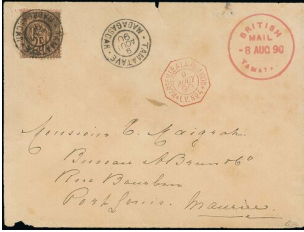 TAMATAVE
MADAGASCAR
BRITISH
MAIL
-8 AUG 90
Monsieur C. Maigrot
Bureau A. Brun & Co
Rue Bourbon
Port Louis. Maurice